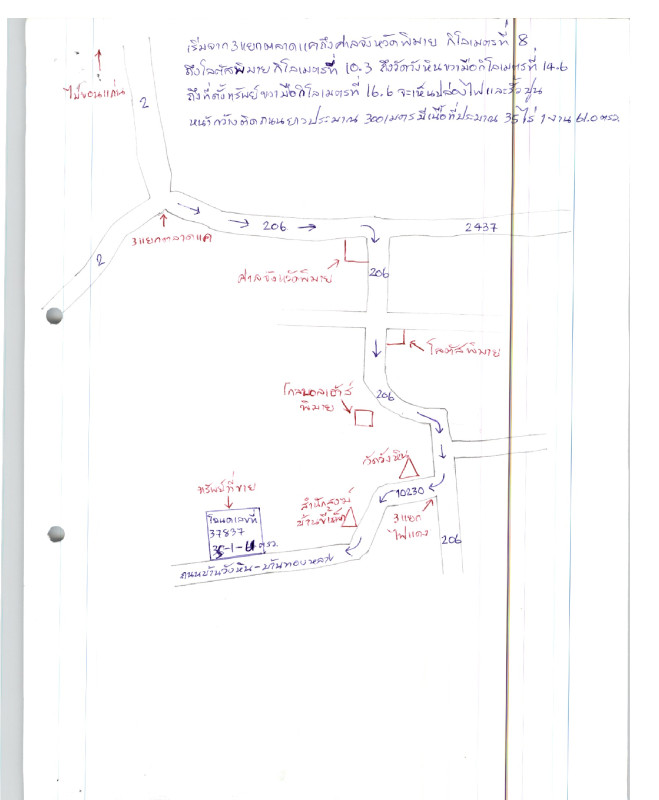 เริ่มจาก3แยกตลาดแคถึงศาลจังหวัดพิมาย กิโลเมตรที่ 8
ถึงโลตัสพิมายกิโลเมตรที่ 10.3 ถึงวัดวังหินขวามือกิโลเมตรที่ 14.6
ถึงที่ตั้งทรัพย์ขวามือกิโลเมตรที่ 16.6 จะเห็นปล่องไฟและรั้วปูน
หน้ากว้างติดถนนยาวประมาณ 300เมตร มีเนื้อที่ประมาณ 35ไร่ 1งาน 61.0ตรว.
ไปขอนแก่น
2
2
3แยกตลาดแค
206
2437
206
ศาลจังหวัดพิมาย
โลตัสพิมาย
206
โกลบอลเฮ้าส์
พิมาย
วัดวังหิน
10230
3แยก
ไฟแดง
206
ทรัพย์ที่ขาย
สำนักสงฆ์
โฉนดเลขที่
37837
35-1-61 ตรว.
ถนนบ้านวังหิน-บ้านทองหลาง